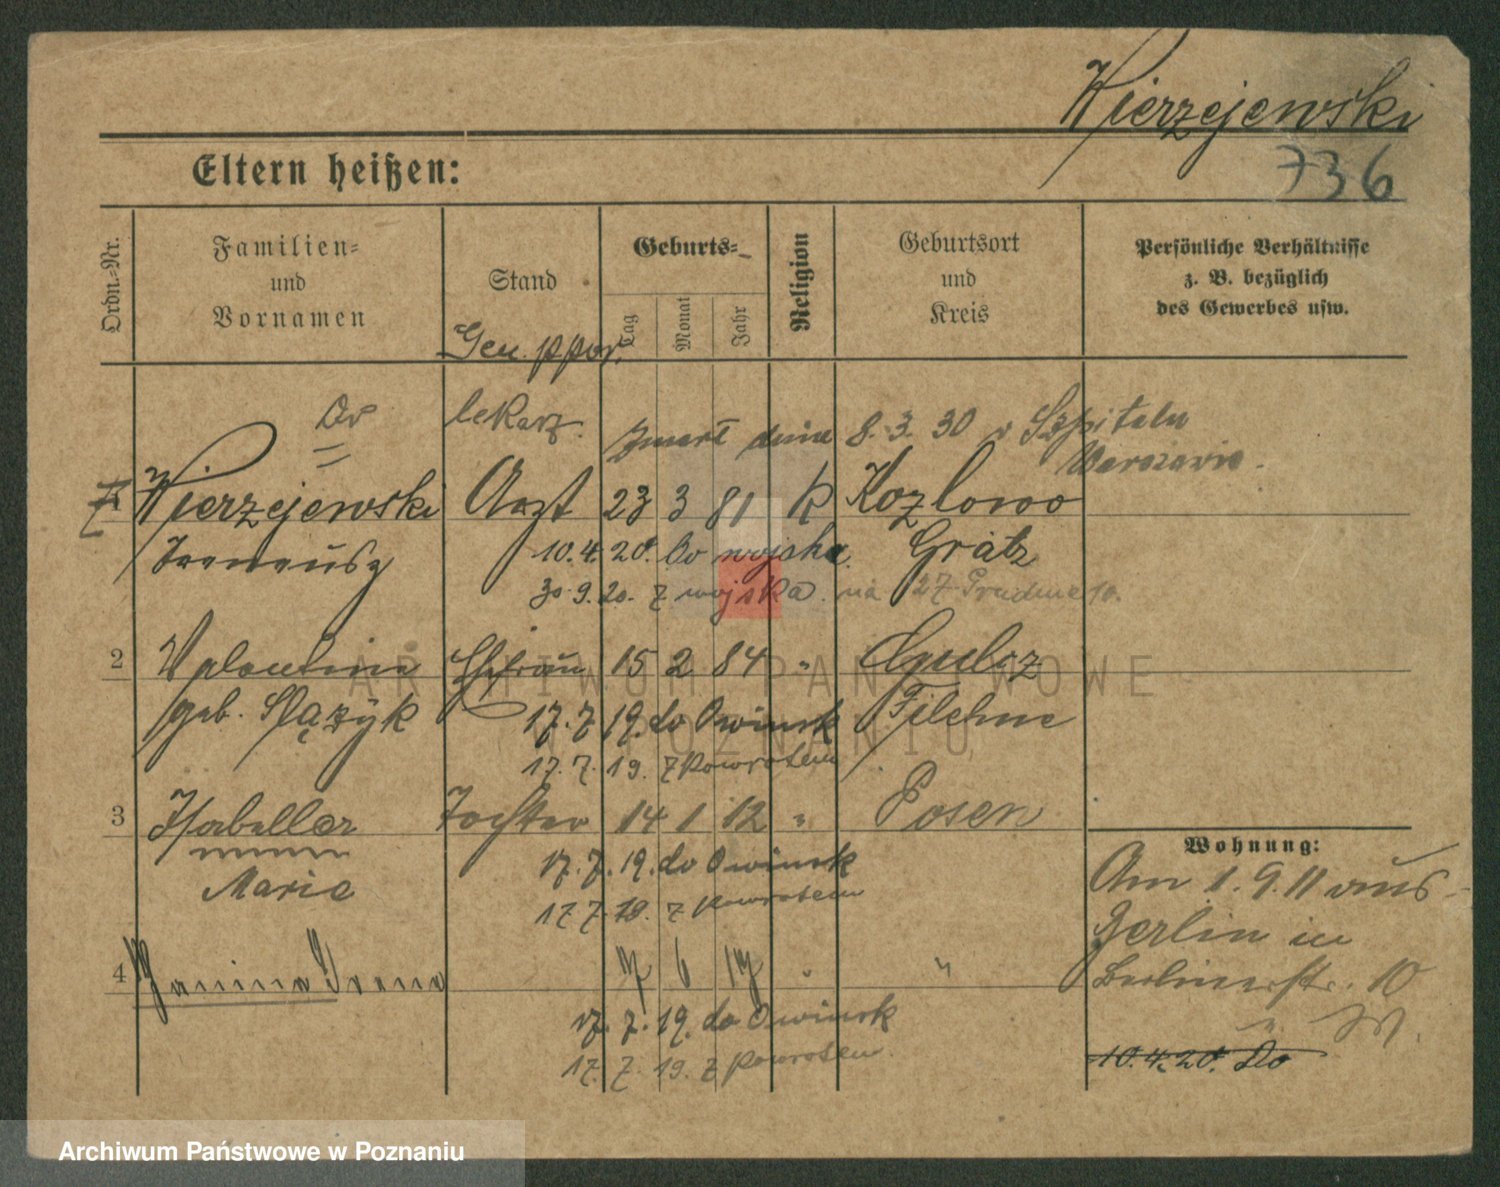 Wierzejewski
Eltern heißen:
736
Ordn.-Nr.
Familien-
und
Vornamen
Stand
Geburts-
Tag
Monat
Jahr
Religion
Geburtsort
und
Kreis
Persönliche Verhältnisse
z. B. bezüglich
des Gewerbes usw.
Gen. ppor.
Dr lekarz. zmarł dnia 8.3.30 w Szpitalu
Warszawie.
1 Wierzejewski Arzt 23 3 81 K Kozlowo
Ireneusz 10.4.20. Do wojska. Grätz
30.9.20. z wojska. na 27 Grudnia 10.
2 Valentine Ehefrau 15 2 84 " Czulcz
geb. 17.7.19. do Owinsk Filehne
17.7.19. z powrotem
3 Isabella Tochter 14 1 12 " Posen
17.7.19. do Owinsk
Marie
17.7.19. z powrotem
4 Janina Irena 7 6 17 " "
17.7.19. do Owinsk
17.7.19. z powrotem
Wohnung:
Am 1.9.11 aus
Berlin in
Berlinerstr. 10
10.4.20. Do
ARCHIWUM PAŃSTWOWE
W POZNANIU
Archiwum Państwowe w Poznaniu